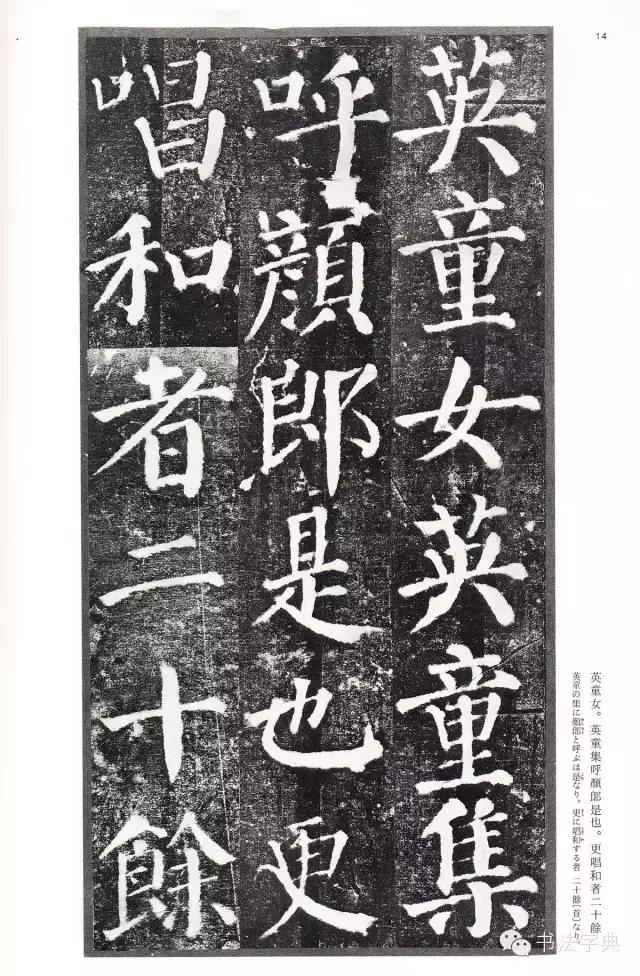 14
英童女英童集
呼顔郎是也更
唱和者二十餘
英童女。英童集呼顏郎是也。更唱和者二十餘
英童の集に顔郎と呼ぶは是なり。更に唱和する者 二十餘〔首〕なり。
书法字典